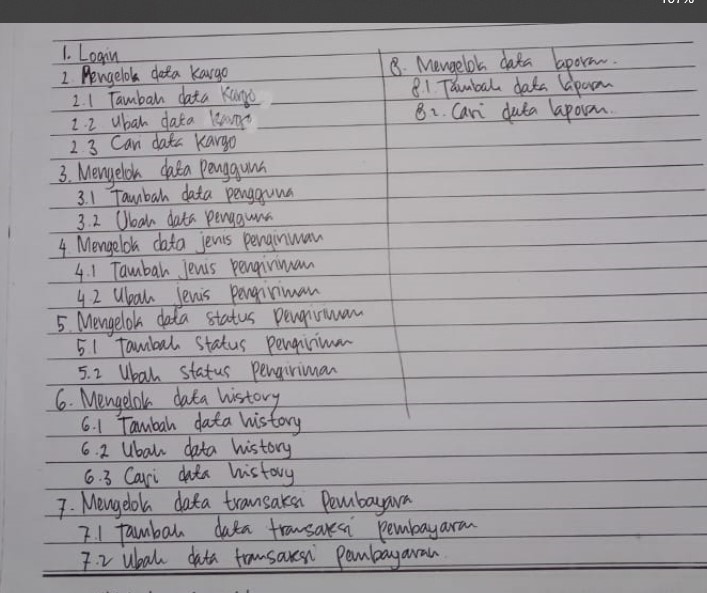 1. Login
2. Pengelola data kargo
2.1 Tambah data kargo
2.2 Ubah data kargo
2.3 Cari data kargo
3. Mengelola data pengguna
3.1 Tambah data pengguna
3.2 Ubah data pengguna
4. Mengelola data jenis pengiriman
4.1 Tambah jenis pengiriman
4.2 Ubah jenis pengiriman
5. Mengelola data status pengiriman
5.1 Tambah status pengiriman
5.2 Ubah status pengiriman
6. Mengelola data history
6.1 Tambah data history
6.2 Ubah data history
6.3 Cari data history
7. Mengelola data transaksi pembayaran
7.1 Tambah data transaksi pembayaran
7.2 Ubah data transaksi pembayaran
8. Mengelola data laporan.
8.1. Tambah data laporan
8.2. Cari data laporan.